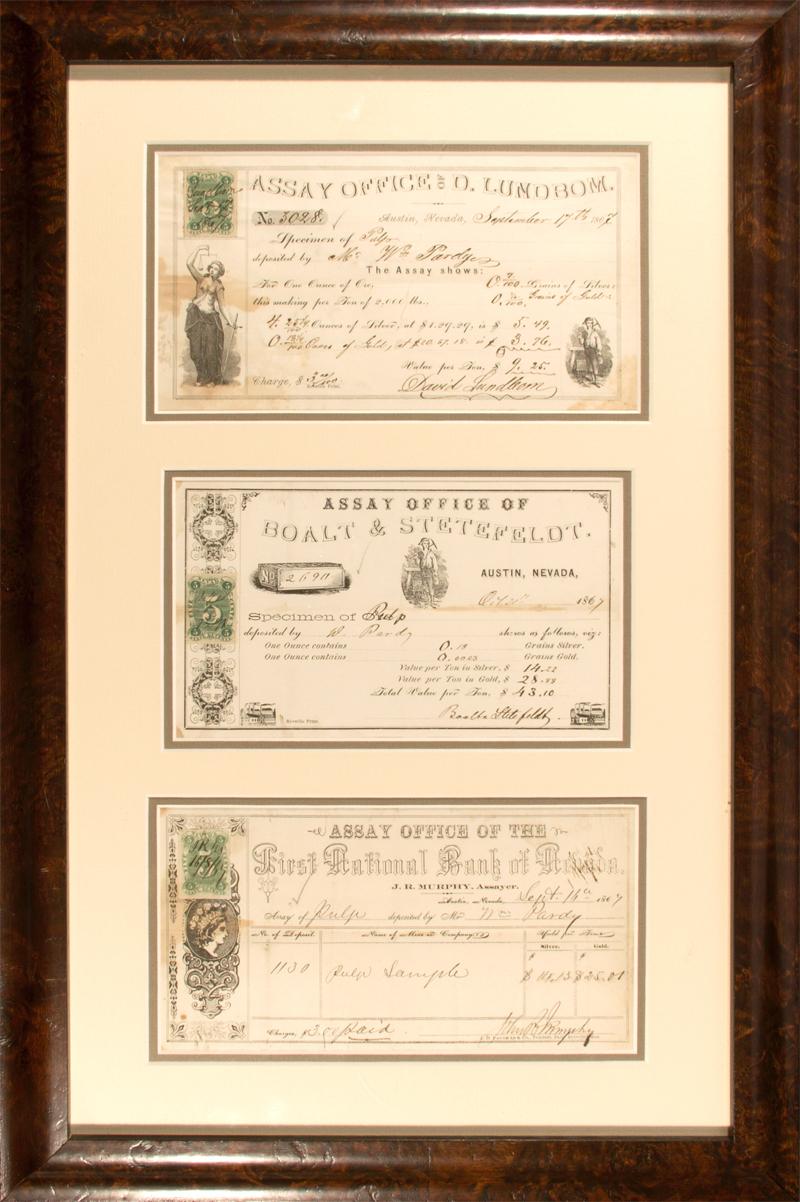 ASSAY OFFICE OF D. LUNDBOM.
No. 3028.
Austin, Nevada, September 17th 1867
Specimen of Pulp
deposited by Mr Wm Pardy
The Assay shows:
For One Ounce of Ore, 0. /100 Grains of Silver:
this making per Ton of 2,000 lbs. 0. /100 Grains of Gold:
4. /100 Ounces of Silver, at $1.29.29, is $ 5.49.
0. /100 Ozs of Gold, at $20.67.18 is $ 3.76.
Value per Ton, $ 9.25.
Charge, $ 3 00/100
David Lundbom
ASSAY OFFICE OF
BOALT & STETEFELDT.
No 2690
5
AUSTIN, NEVADA,
Oct 1867
Specimen of Pulp
deposited by W. Pardy shows as follows, viz:
One Ounce contains 0.19 Grains Silver.
One Ounce contains 0.0203 Grains Gold.
Value per Ton in Silver, $ 14.22
Value per Ton in Gold, $ 28.88
Total Value per Ton, $ 43.10
Boalt & Stetefeldt.
Reveille Print.
ASSAY OFFICE OF THE
First National Bank of Nevada.
J. R. MURPHY, Assayer.
Austin, Nevada, Sept. 14th 1867
Assay of Pulp deposited by Mr Wm Pardy
No. of Deposit. Name of Mine or Company. Yield per Ton
Silver. Gold.
1130 Pulp Sample $ $25.01
Charges, $3.00 Paid. John R Murphy